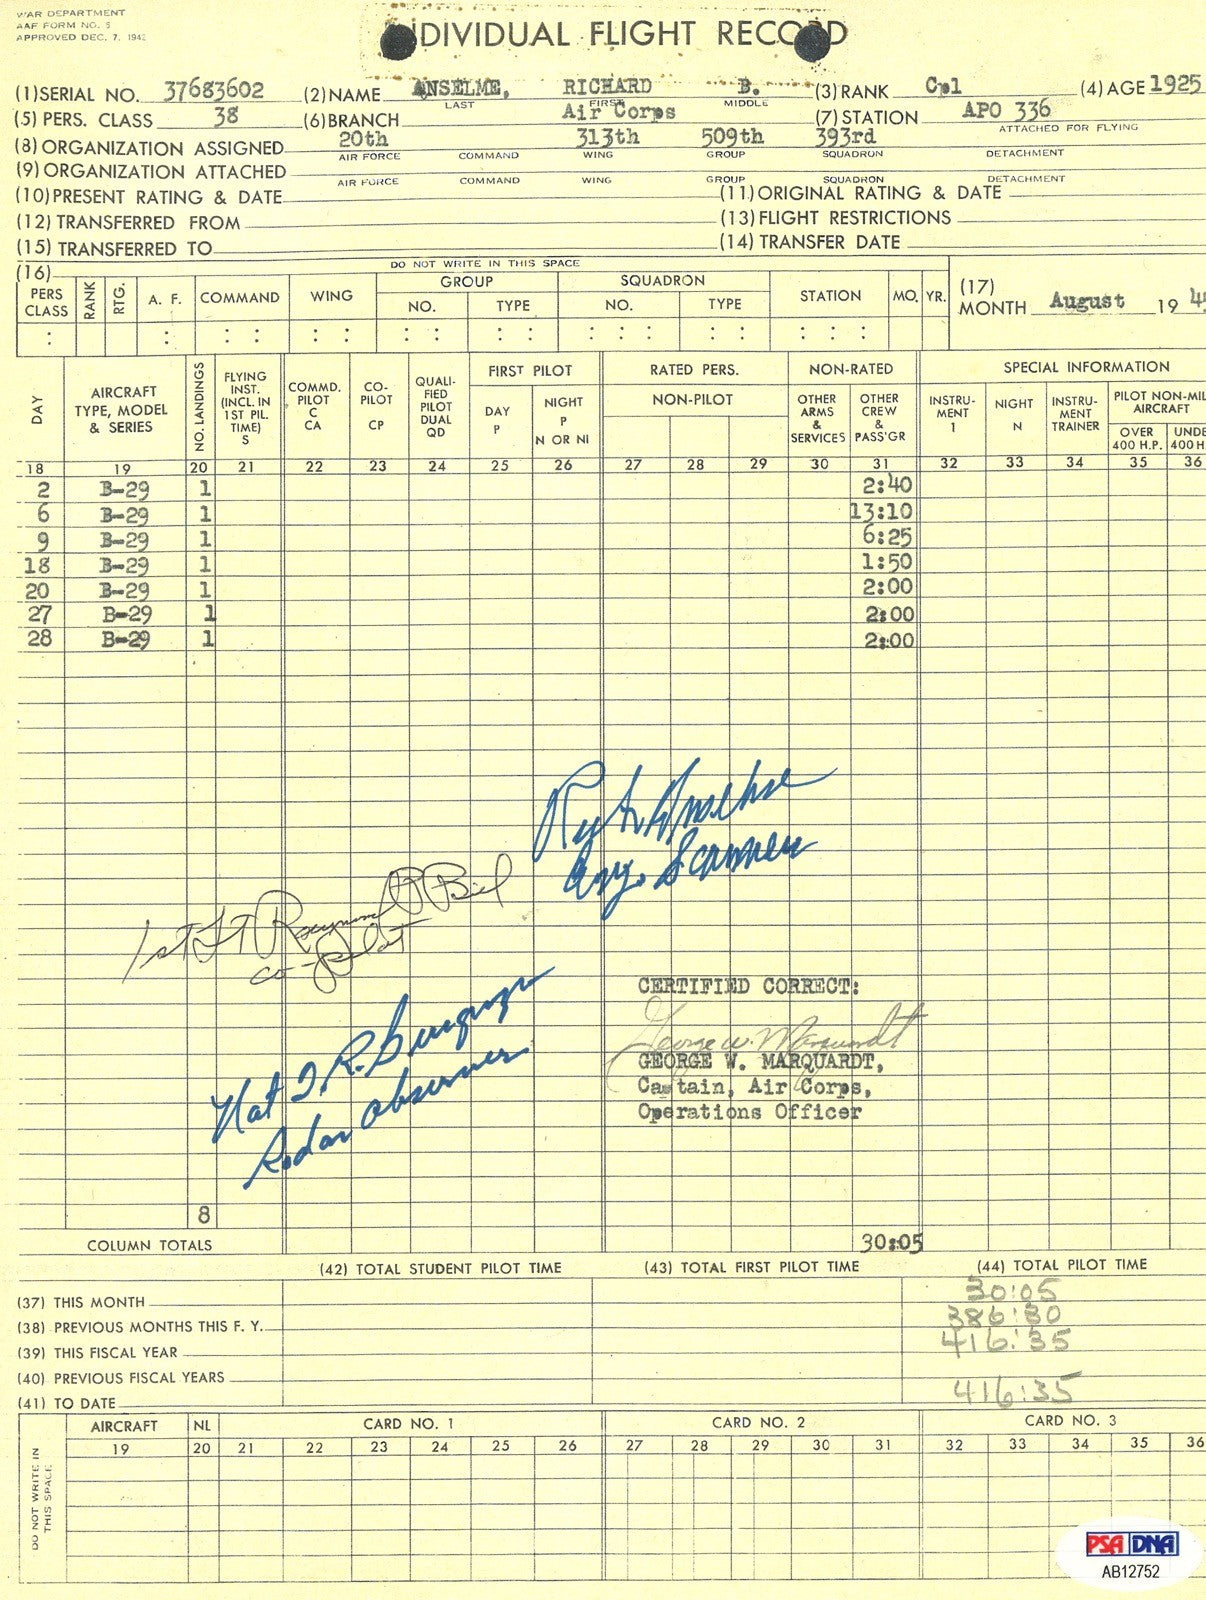 WAR DEPARTMENT
AAF FORM NO. 5
APPROVED DEC. 7, 1942
INDIVIDUAL FLIGHT RECORD
(1) SERIAL NO. 37683602 (2) NAME ANSELME, RICHARD B. (3) RANK Cpl (4) AGE 1925
LAST FIRST MIDDLE
(5) PERS. CLASS 38 (6) BRANCH Air Corps (7) STATION APO 336
ATTACHED FOR FLYING
(8) ORGANIZATION ASSIGNED 20th 313th 509th 393rd
AIR FORCE COMMAND WING GROUP SQUADRON DETACHMENT
(9) ORGANIZATION ATTACHED
AIR FORCE COMMAND WING GROUP SQUADRON DETACHMENT
(10) PRESENT RATING & DATE (11) ORIGINAL RATING & DATE
(12) TRANSFERRED FROM (13) FLIGHT RESTRICTIONS
(15) TRANSFERRED TO (14) TRANSFER DATE
(16) DO NOT WRITE IN THIS SPACE
PERS CLASS RANK RTG. A. F. COMMAND WING GROUP NO. TYPE SQUADRON NO. TYPE STATION MO. YR.
(17) MONTH August 19 4
DAY AIRCRAFT TYPE, MODEL & SERIES NO. LANDINGS FLYING INST. (INCL. IN 1ST PIL. TIME) S COMMD. PILOT C CA CO-PILOT CP QUALI-FIED PILOT DUAL QD FIRST PILOT DAY P NIGHT P N OR NI RATED PERS. NON-PILOT NON-RATED OTHER ARMS & SERVICES OTHER CREW & PASS'GR SPECIAL INFORMATION INSTRU-MENT I NIGHT N INSTRU-MENT TRAINER PILOT NON-MIL AIRCRAFT OVER 400 H.P. UNDE 400 H
18 19 20 21 22 23 24 25 26 27 28 29 30 31 32 33 34 35 36
2 B-29 1 2:40
6 B-29 1 13:10
9 B-29 1 6:25
18 B-29 1 1:50
20 B-29 1 2:00
27 B-29 1 2:00
28 B-29 1 2:00
Anselme
Eng. Scanner
1st LT Raymond P Biel
co-pilot
Nat T. R. Bergman
Radar observer
CERTIFIED CORRECT:
George W. Marquardt
GEORGE W. MARQUARDT,
Captain, Air Corps,
Operations Officer
8
COLUMN TOTALS 30:05
(42) TOTAL STUDENT PILOT TIME (43) TOTAL FIRST PILOT TIME (44) TOTAL PILOT TIME
(37) THIS MONTH 30:05
(38) PREVIOUS MONTHS THIS F. Y. 386:30
(39) THIS FISCAL YEAR 416:35
(40) PREVIOUS FISCAL YEARS
(41) TO DATE 416:35
AIRCRAFT NL CARD NO. 1 CARD NO. 2 CARD NO. 3
19 20 21 22 23 24 25 26 27 28 29 30 31 32 33 34 35 36
DO NOT WRITE IN THIS SPACE
PSA DNA
AB12752